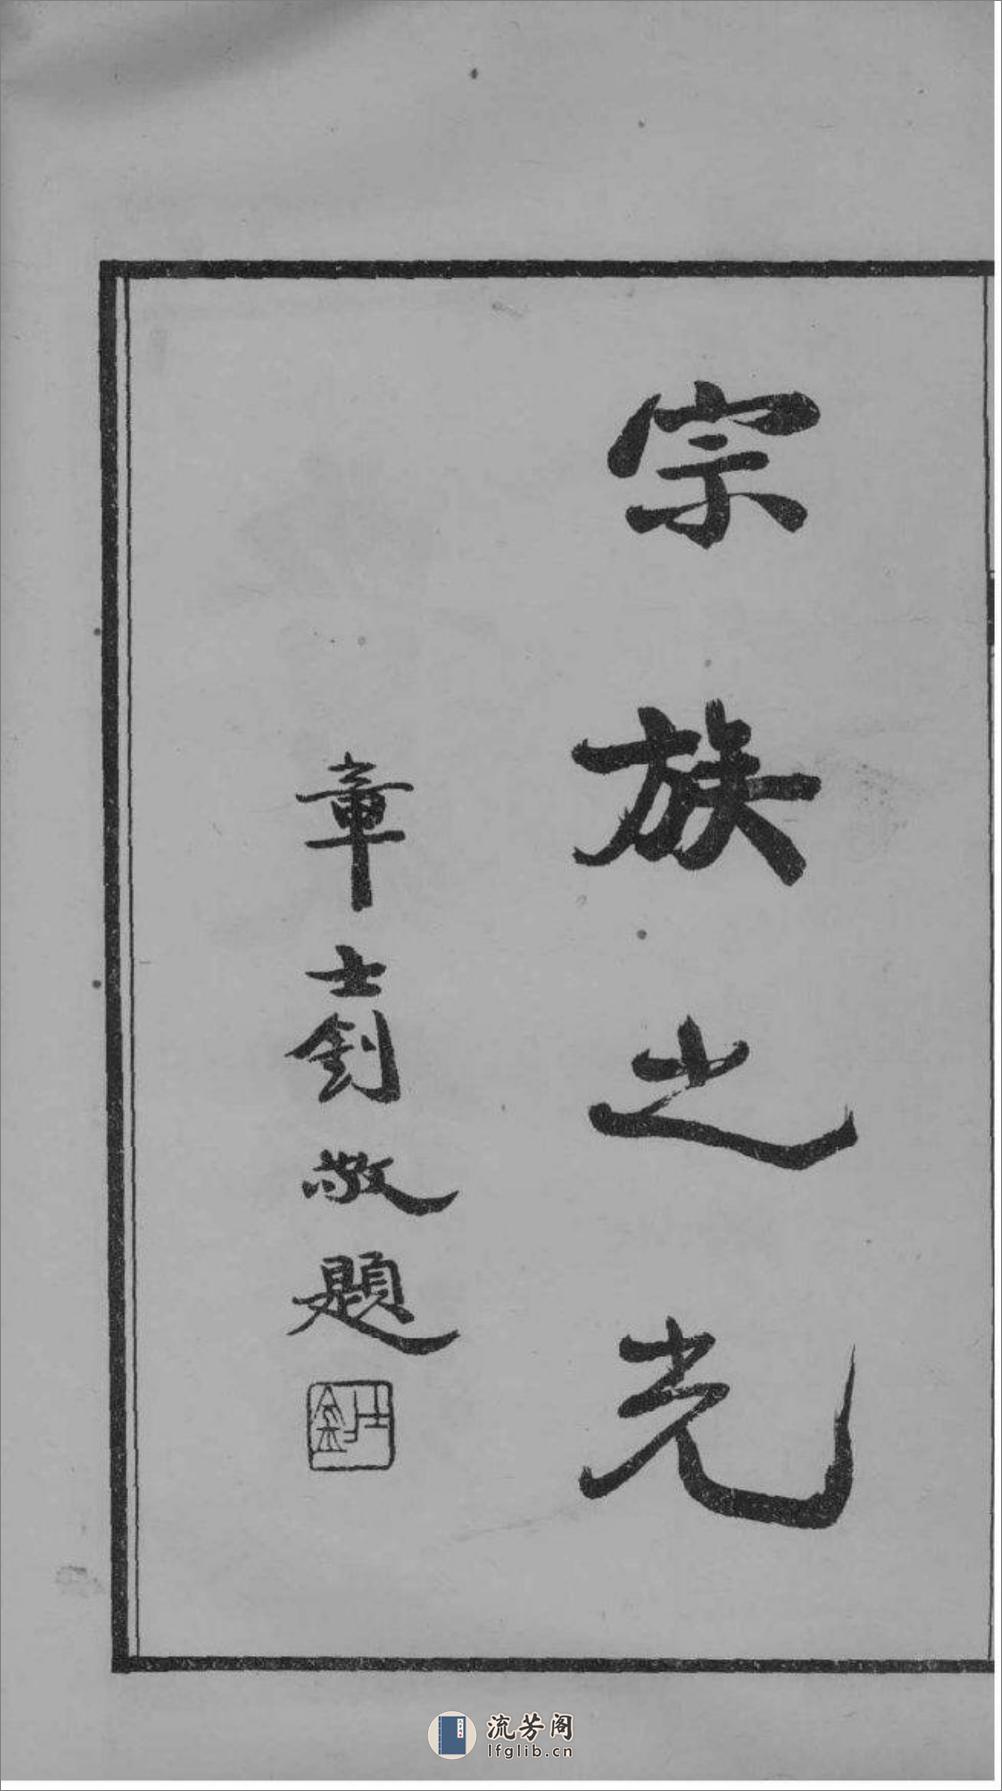 宗族之光
章士釗敬題
流芳阁
lfglib.cn